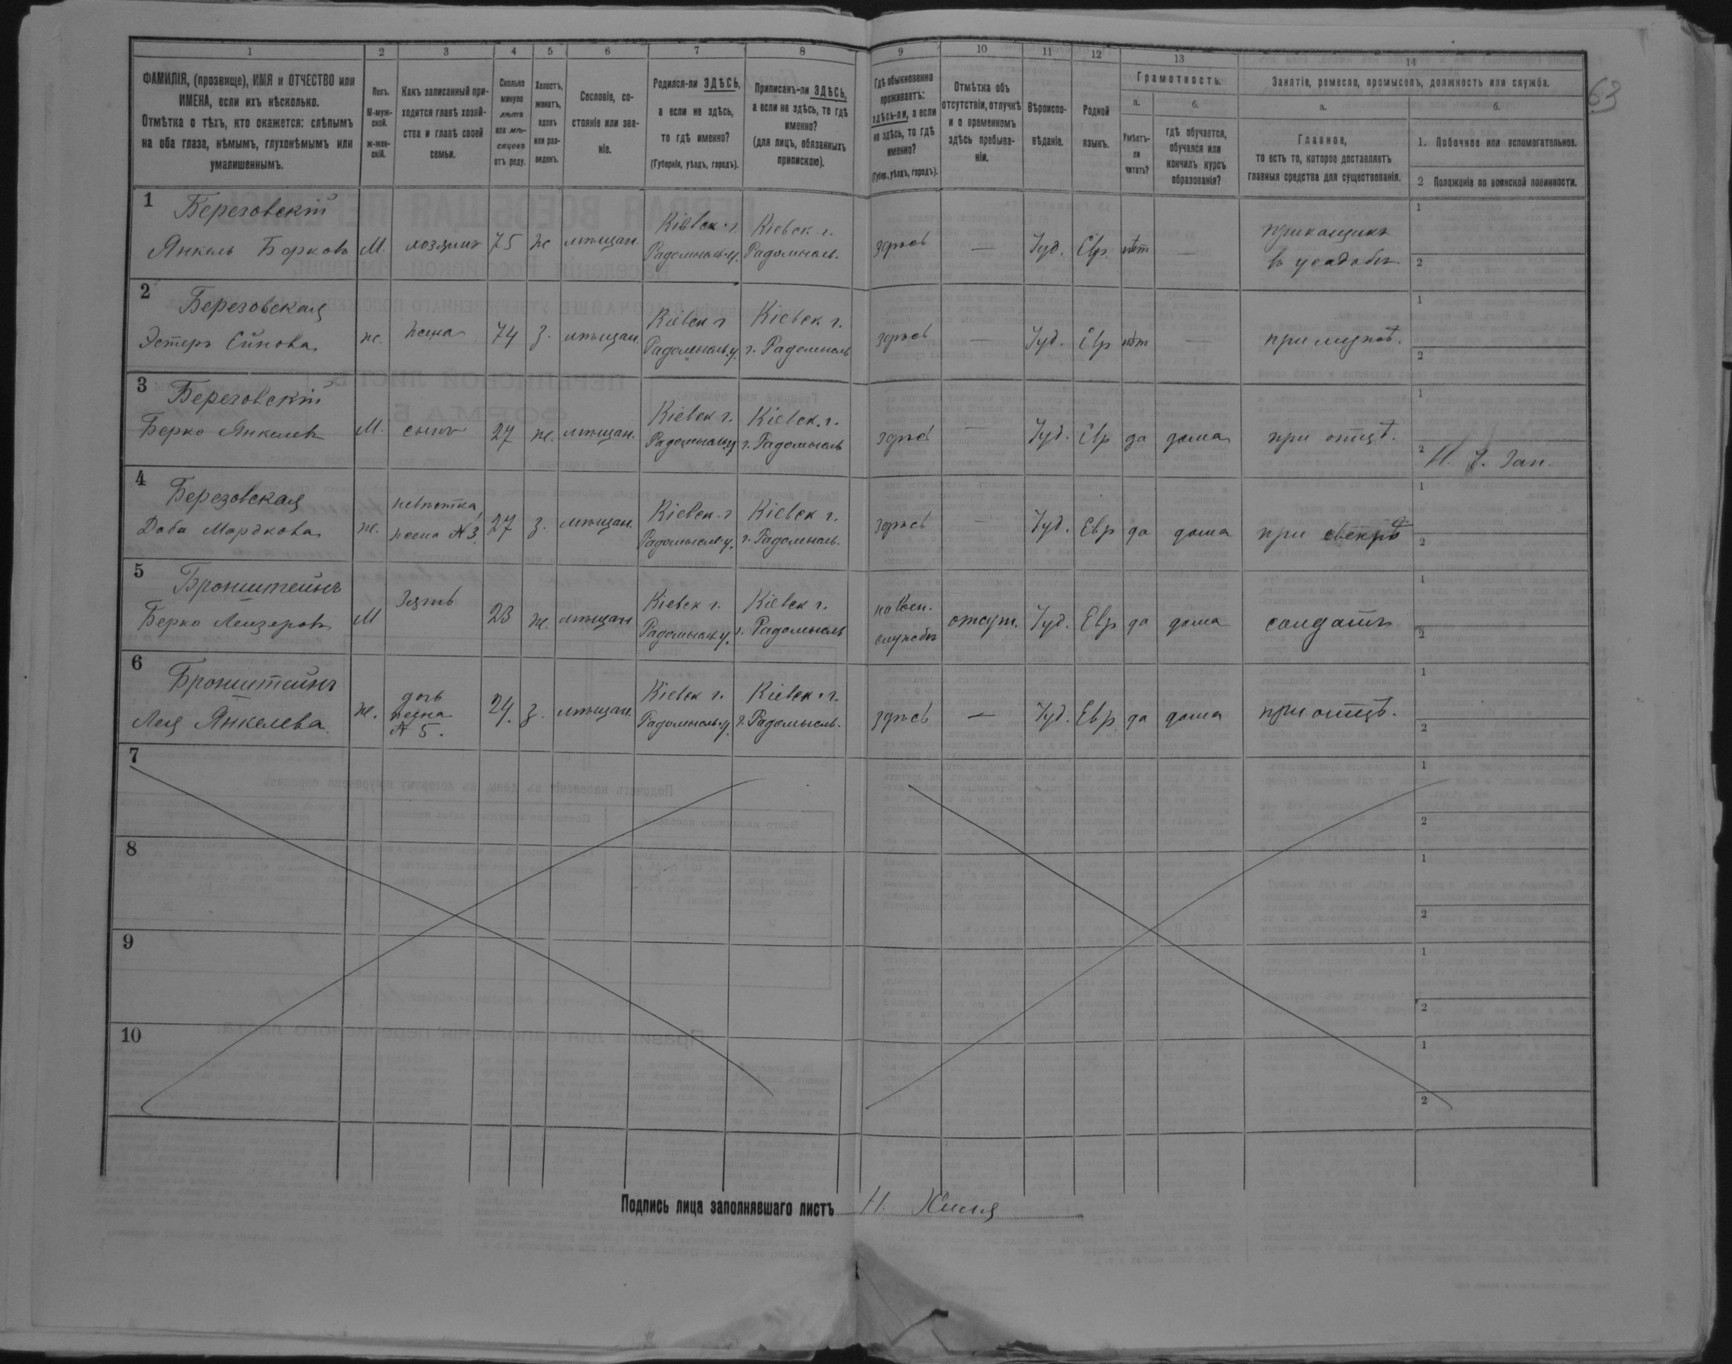 1 2 3 4 5 6 7 8 9 10 11 12 13 14
ФАМИЛІЯ, (прозвище), ИМЯ и ОТЧЕСТВО или
ИМЕНА, если ихъ нѣсколько.
Отмѣтка о тѣхъ, кто окажется: слѣпымъ
на оба глаза, нѣмымъ, глухонѣмымъ или
умалишеннымъ.
Полъ.
М-муж-
ской.
ж-жен-
скій.
Какъ записанный при-
ходится главѣ хозяй-
ства и главѣ своей
семьи.
Сколько
минуло
лѣтъ
или мѣ-
сяцевъ
отъ роду.
Холостъ,
женатъ,
вдовъ
или раз-
веденъ.
Сословіе, со-
стояніе или зва-
ніе.
Родился-ли ЗДѢСЬ,
а если не здѣсь,
то гдѣ именно?
(Губернія, уѣздъ, городъ).
Приписанъ-ли ЗДѢСЬ,
а если не здѣсь, то гдѣ
именно?
(для лицъ, обязанныхъ
припискою).
Гдѣ обыкновенно
проживаетъ:
здѣсь-ли, а если
не здѣсь, то гдѣ
именно?
(Губер., уѣздъ, городъ).
Отмѣтка объ
отсутствіи, отлучкѣ
и о временномъ
здѣсь пребыва-
ніи.
Вѣроиспо-
вѣданіе.
Родной
языкъ.
Грамотность.
а.
Умѣетъ-
ли
читать?
б.
гдѣ обучается,
обучался или
кончилъ курсъ
образованія?
Занятіе, ремесло, промыселъ, должность или служба.
а.
Главное,
то есть то, которое доставляетъ
главныя средства для существованія.
б.
1. Побочное или вспомогательное.
2 Положеніе по воинской повинности.
63
1 Березовскій
Янкель Берковъ М. хозяинъ 75 ж мѣщан. Кіевск. г. Радомысльу. Кіевск. г. Радомысль. здѣсь — Іуд. Евр. нѣт — прикащикъ
1
2
2 Березовская
Эстеръ жена 74 з. мѣщан. Кіевск г. Радомысльу. Кіевск г. г. Радомысль здѣсь — Іуд. Евр нѣт — при мужѣ.
1
2
3 Березовскій
Берко Янкелев М. сынъ 27 ж. мѣщан. Кіевск г. Радомысльу Кіевск. г. г. Радомысль здѣсь — Іуд. Евр да дома при отцѣ.
1
2
4 Березовская
Доба Мордкова ж. невѣстка, жена №3. 27 з. мѣщан. Кіевск. г Радомысльу. Кіевск г. г. Радомысль. здѣсь — Іуд. Евр да дома при свекрѣ
1
2
5 Бронштейнъ
Берко Лейзеровъ М Зять 23 ж. мѣщан Кіевск г. Радомысльу. Кіевск г. г. Радомысль на воен. службѣ отсут. Іуд. Евр да дома солдатъ
1
2
6 Бронштейнъ
Лея Янкелева. ж. дочь жена № 5. 24. з. мѣщан. Кіевск г. Радомысльу. Кіевск. г. г. Радомысль. здѣсь — Іуд. Евр. да дома при отцѣ.
1
2
7
1
2
8
1
2
9
1
2
10
1
2
Подпись лица заполнявшаго листъ